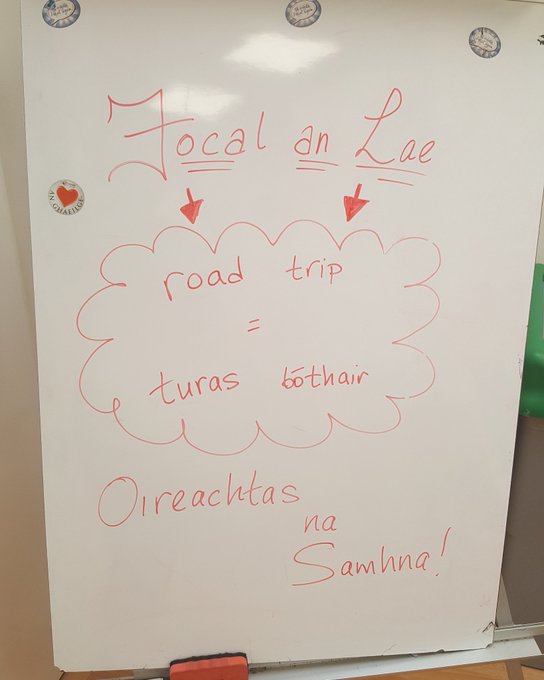 Focal an Lae
AN GHAEILGE
road trip
=
turas bóthair
Oireachtas
na
Samhna!